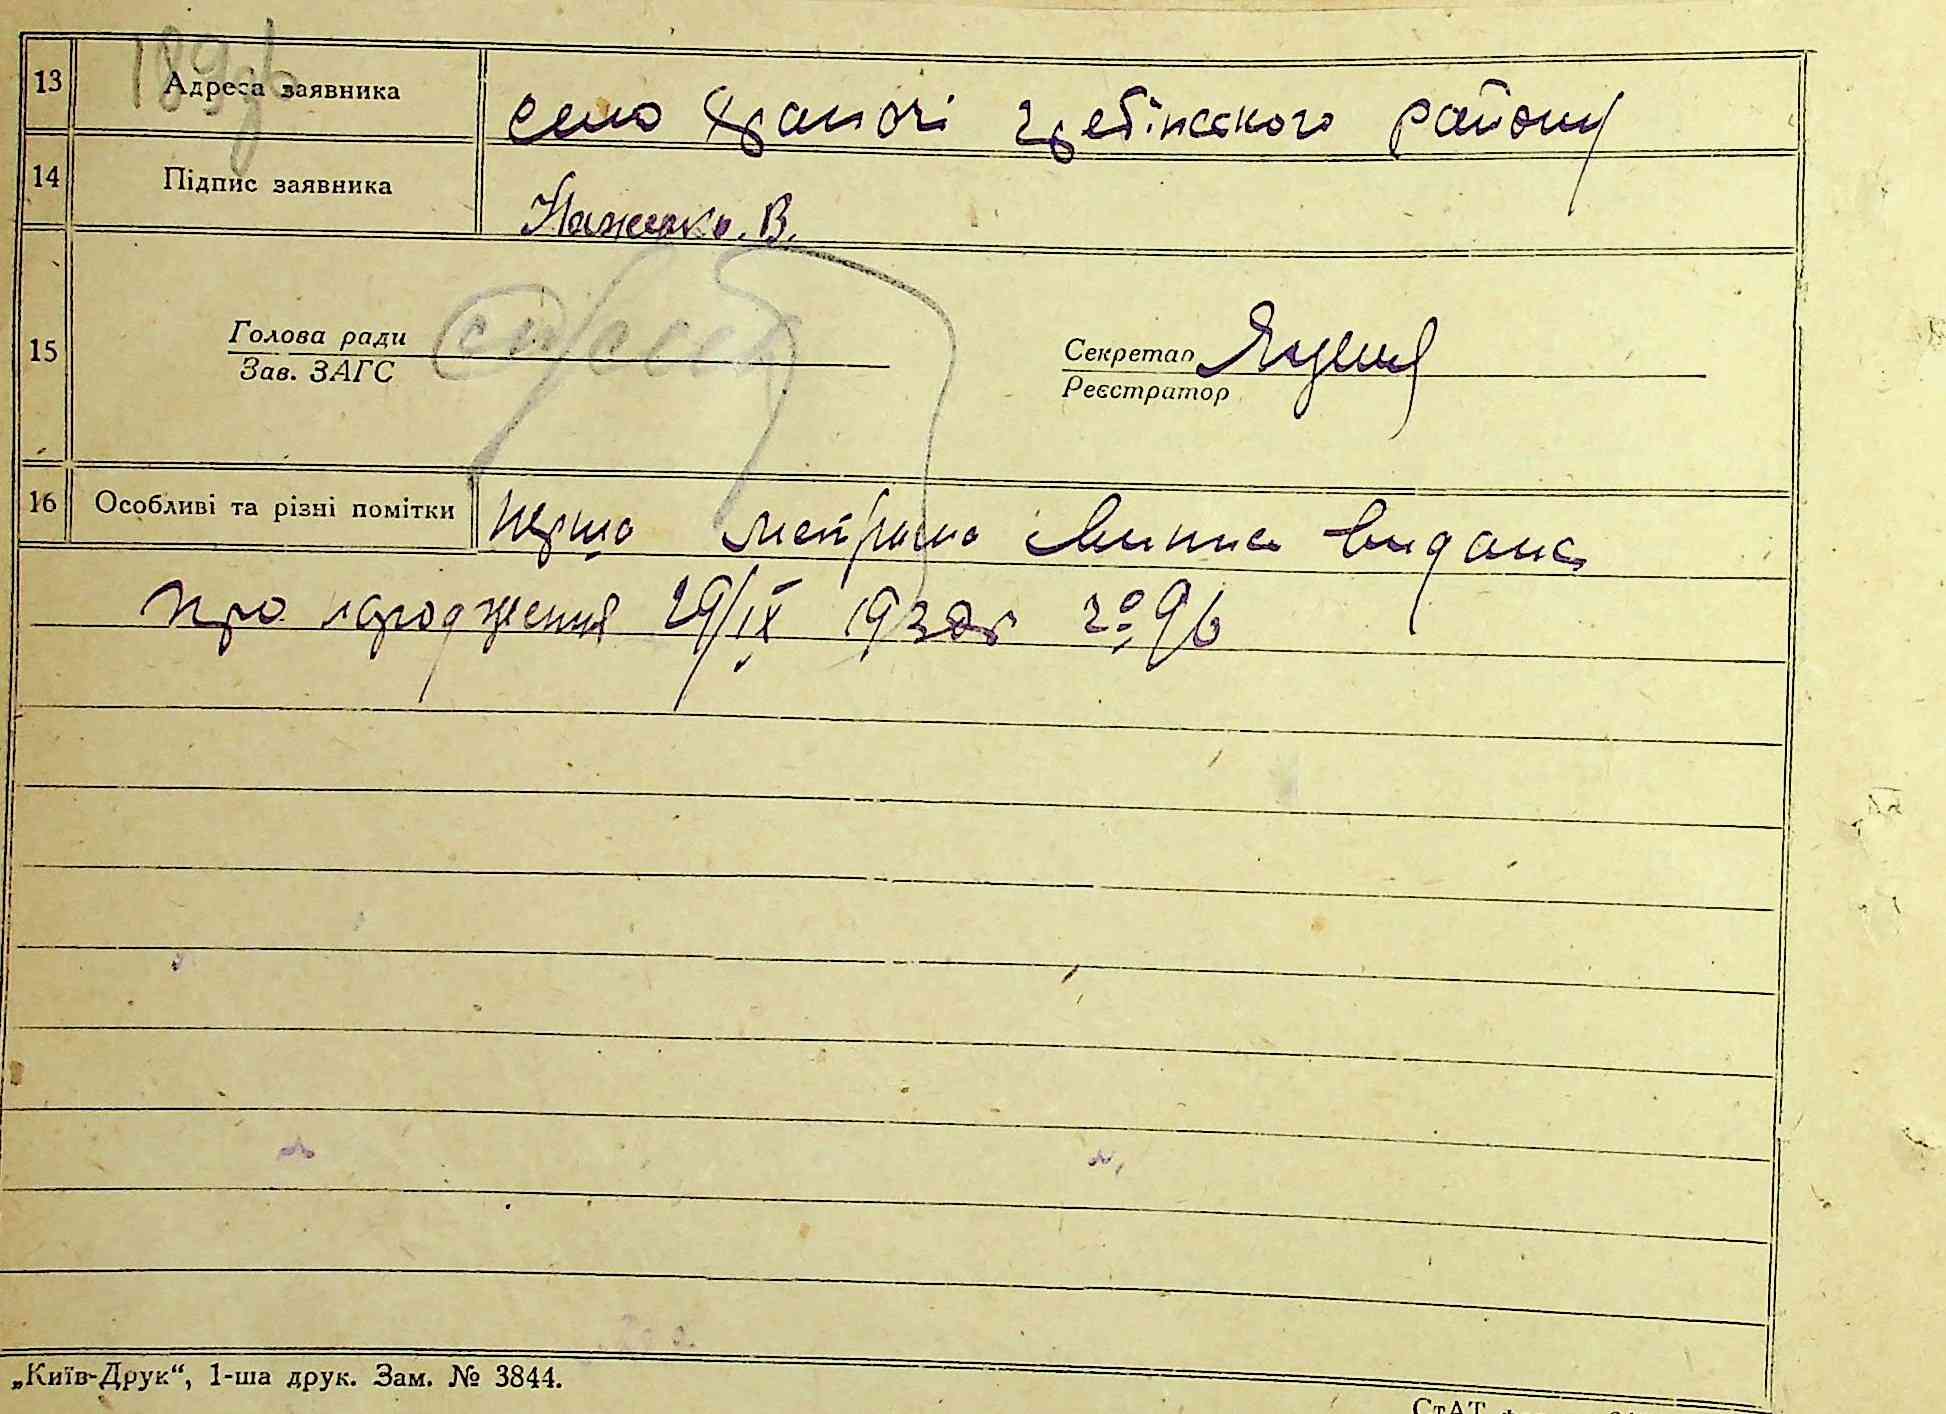 189
13 Адреса заявника село гребінського району
14 Підпис заявника В.
15 Голова ради
Зав. ЗАГС
Секретар
Реєстратор
16 Особливі та різні помітки перша виписка видана
про народження 29/IX 193 № 96
„Київ-Друк“, 1-ша друк. Зам. № 3844.
СтАТ